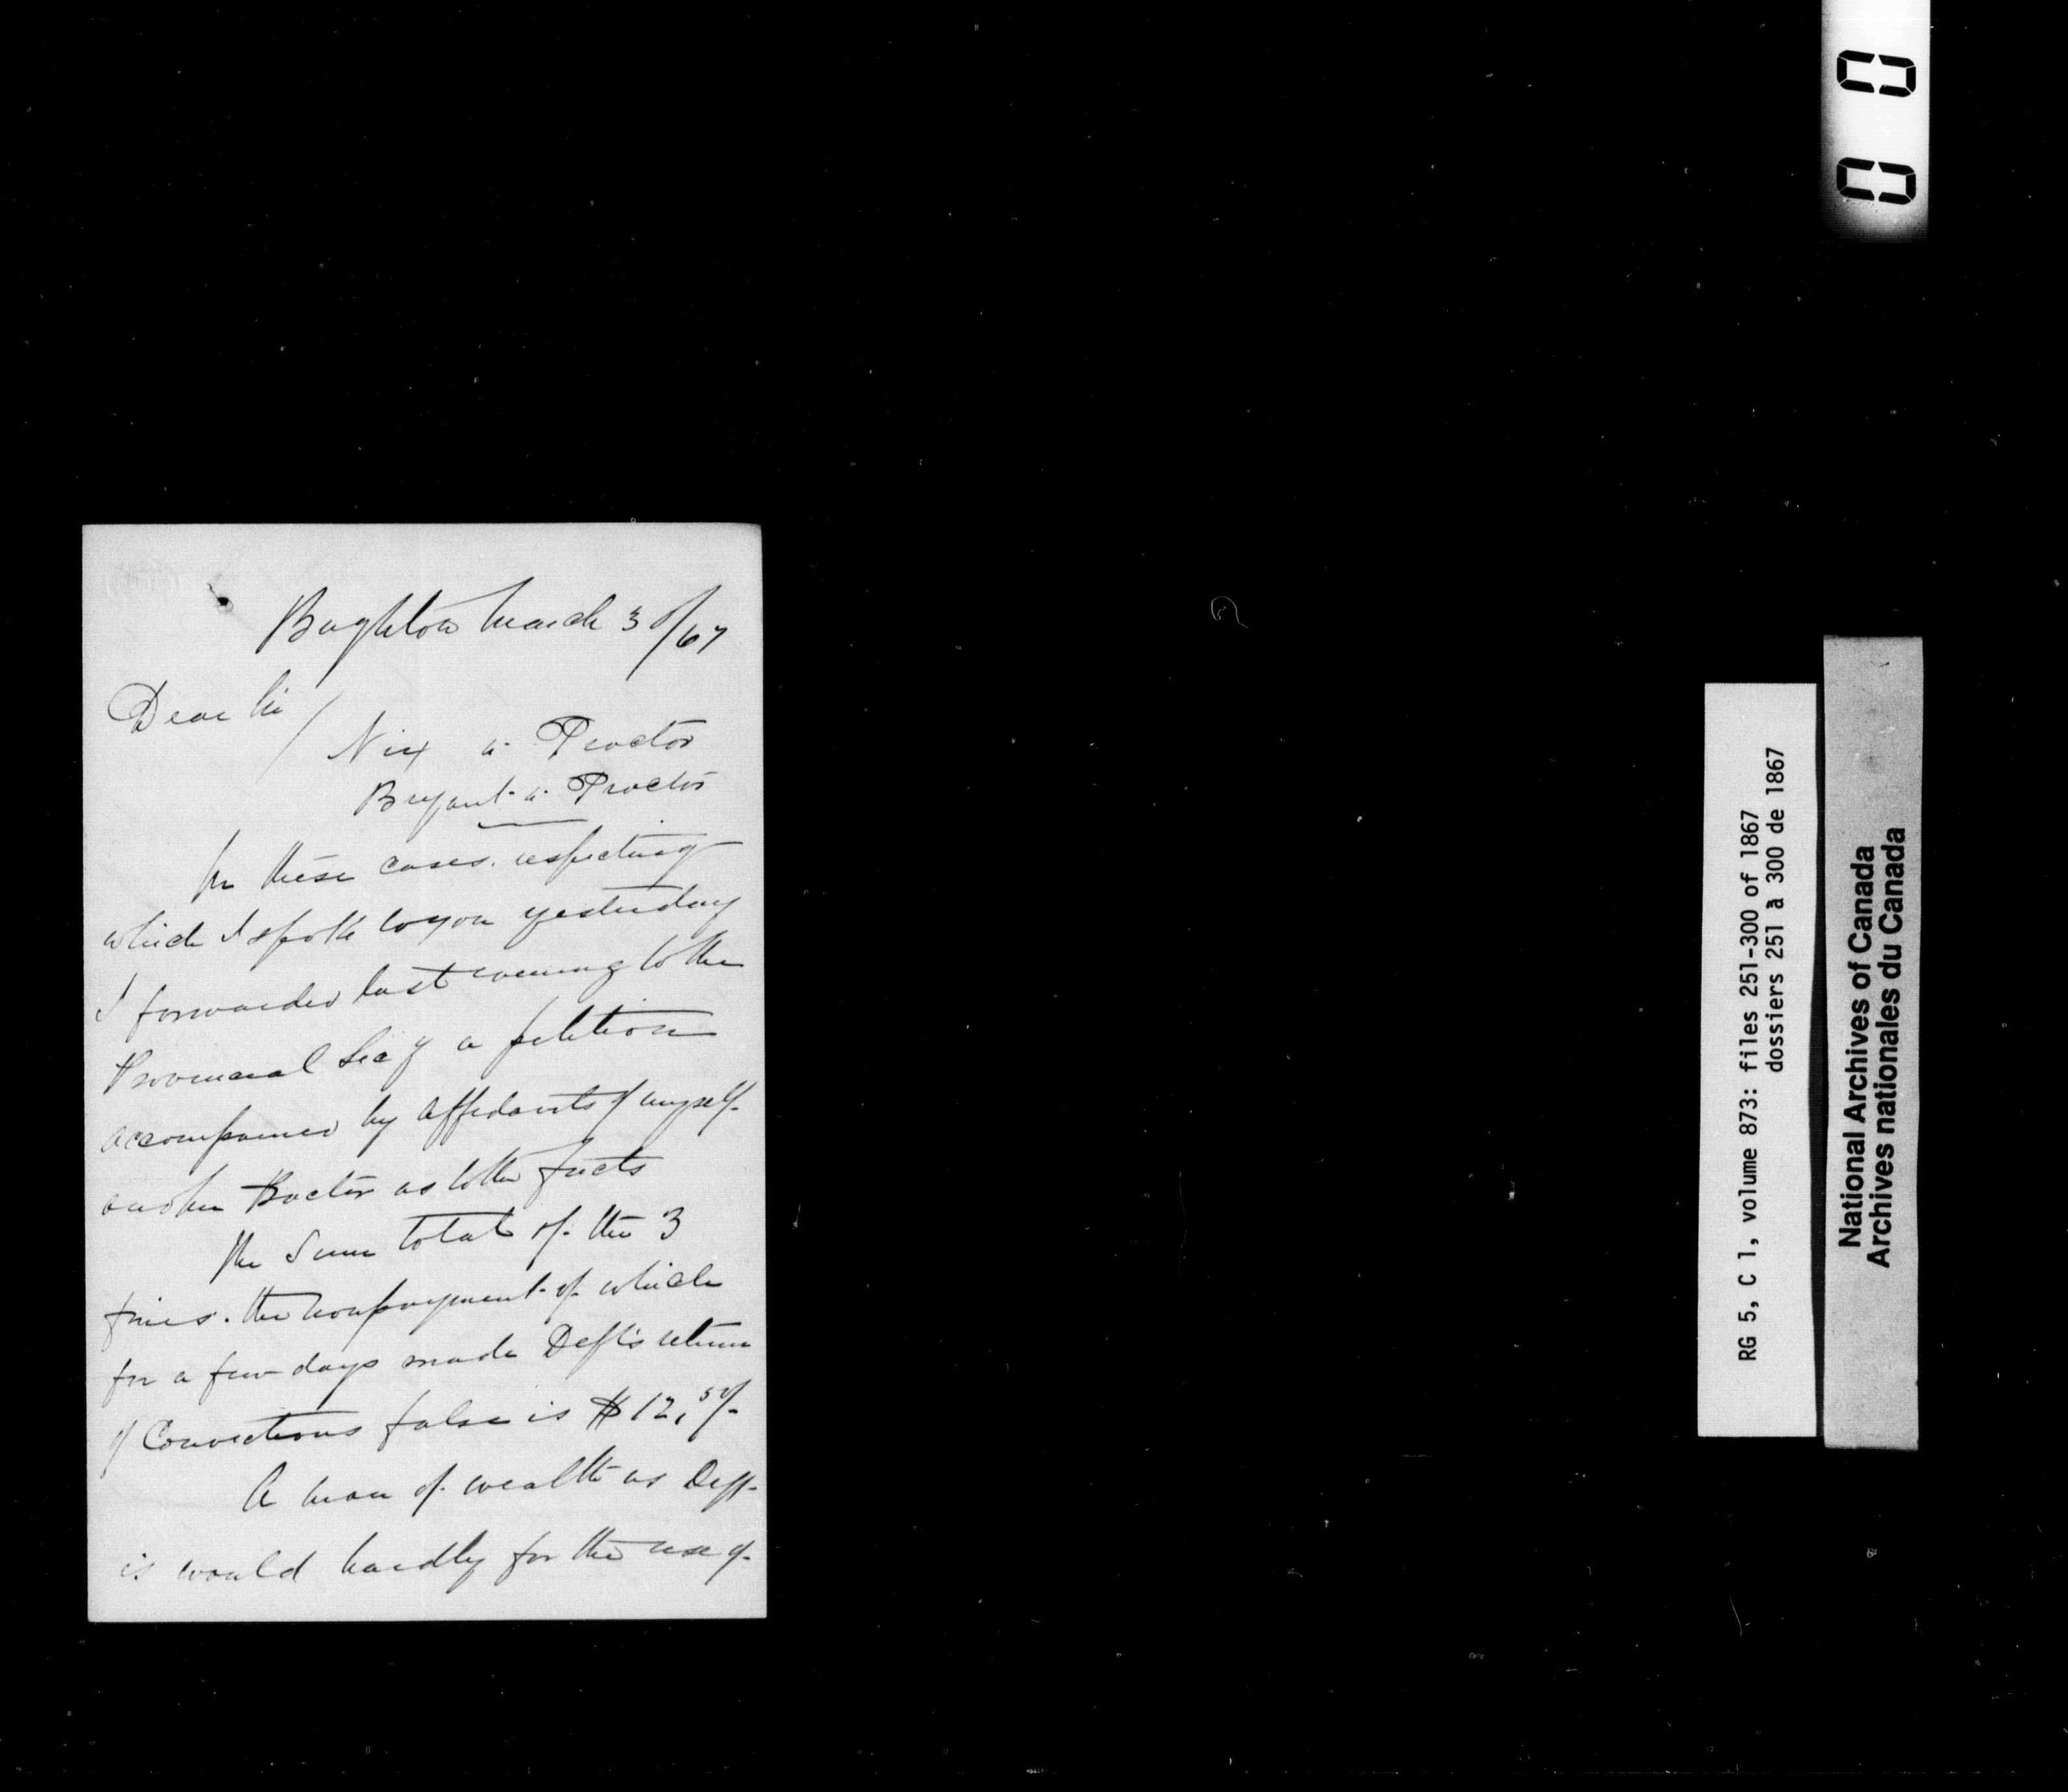 Brighton March 30/67
Dear Sir
Nix a. Proctor
Bryant a. Proctor
In these cases. respecting
which I spoke to you yesterday
I forwarded last evening to the
Provincial Secy a petition
accompanied by affidavits of myself
and Proctor as to the facts
The Sum total of the 3
fines. the nonpayment of which
for a few days made Deft's return
of Convictions false is $12,50/-
A man of wealth as Deft
is would hardly for the use of
00
RG 5, C 1, volume 873: files 251-300 of 1867
dossiers 251 à 300 de 1867
National Archives of Canada
Archives nationales du Canada